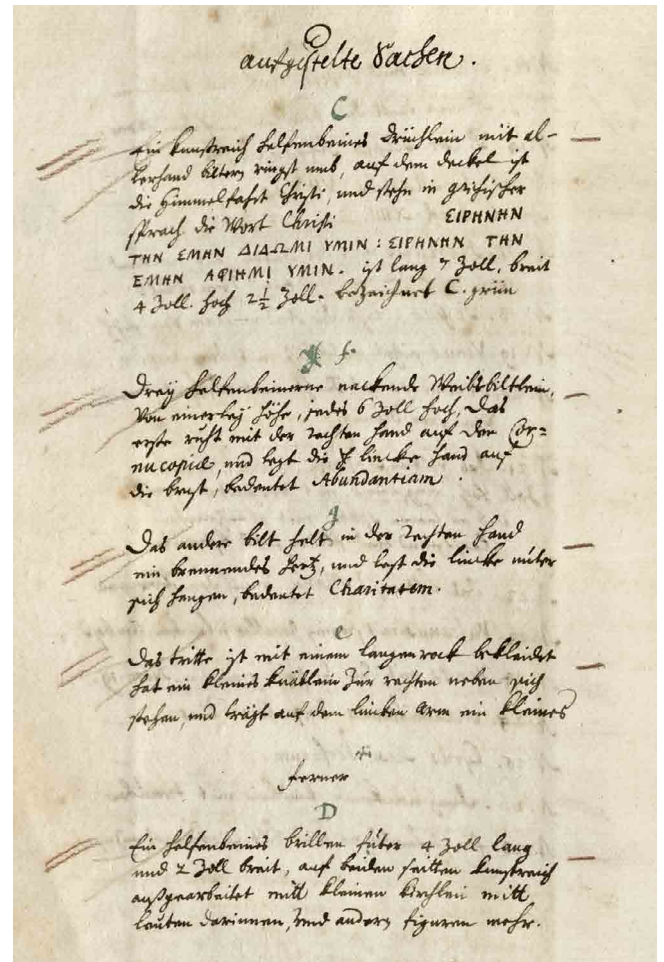 aufgestelte Sachen.
C
Ein kunstreich helfenbeines Trüchlein mit al-
lerhand biltern ringst umb, auf dem deckel ist
die Himmelfahrt Christi, und stehn in grichischer
sprach die Wort Christi ΕΙΡΗΝΗΝ
ΤΗΝ ΕΜΗΝ ΔΙΔΩΜΙ ΥΜΙΝ : ΕΙΡΗΝΗΝ ΤΗΝ
ΕΜΗΝ ΑΦΙΗΜΙ ΥΜΙΝ. ist lang 7 Zoll, breit
4 Zoll. hoch 2½ Zoll. bezeichnet C. grün
f.
Drey helfenbeinerne nackende Weibsbiltlein,
von einerley höhe, jedes 6 Zoll hoch, das
erste ruht mit der rechten hand auf den Cor=
nucopiæ, und legt die lincke hand auf
die brust, bedeutet Abundantiam.
g
Das andere bilt helt in der rechten hand
ein brennendes hertz, und lest die lincke unter
sich hangen, bedeutet Charitatem.
e
Das dritte ist mit einem langen rock bekleidet
hat ein kleines knäblein zur rechten neben sich
stehen, und trägt auf dem lincken arm ein kleines
ferner
D
Ein helfenbeines brillen futer 4 Zoll lang
und 2 Zoll breit, auf beiden seitten kunstreich
außgearbeitet mitt kleinen kirchlein mitt
leuten darinnen, und andern figuren mehr.